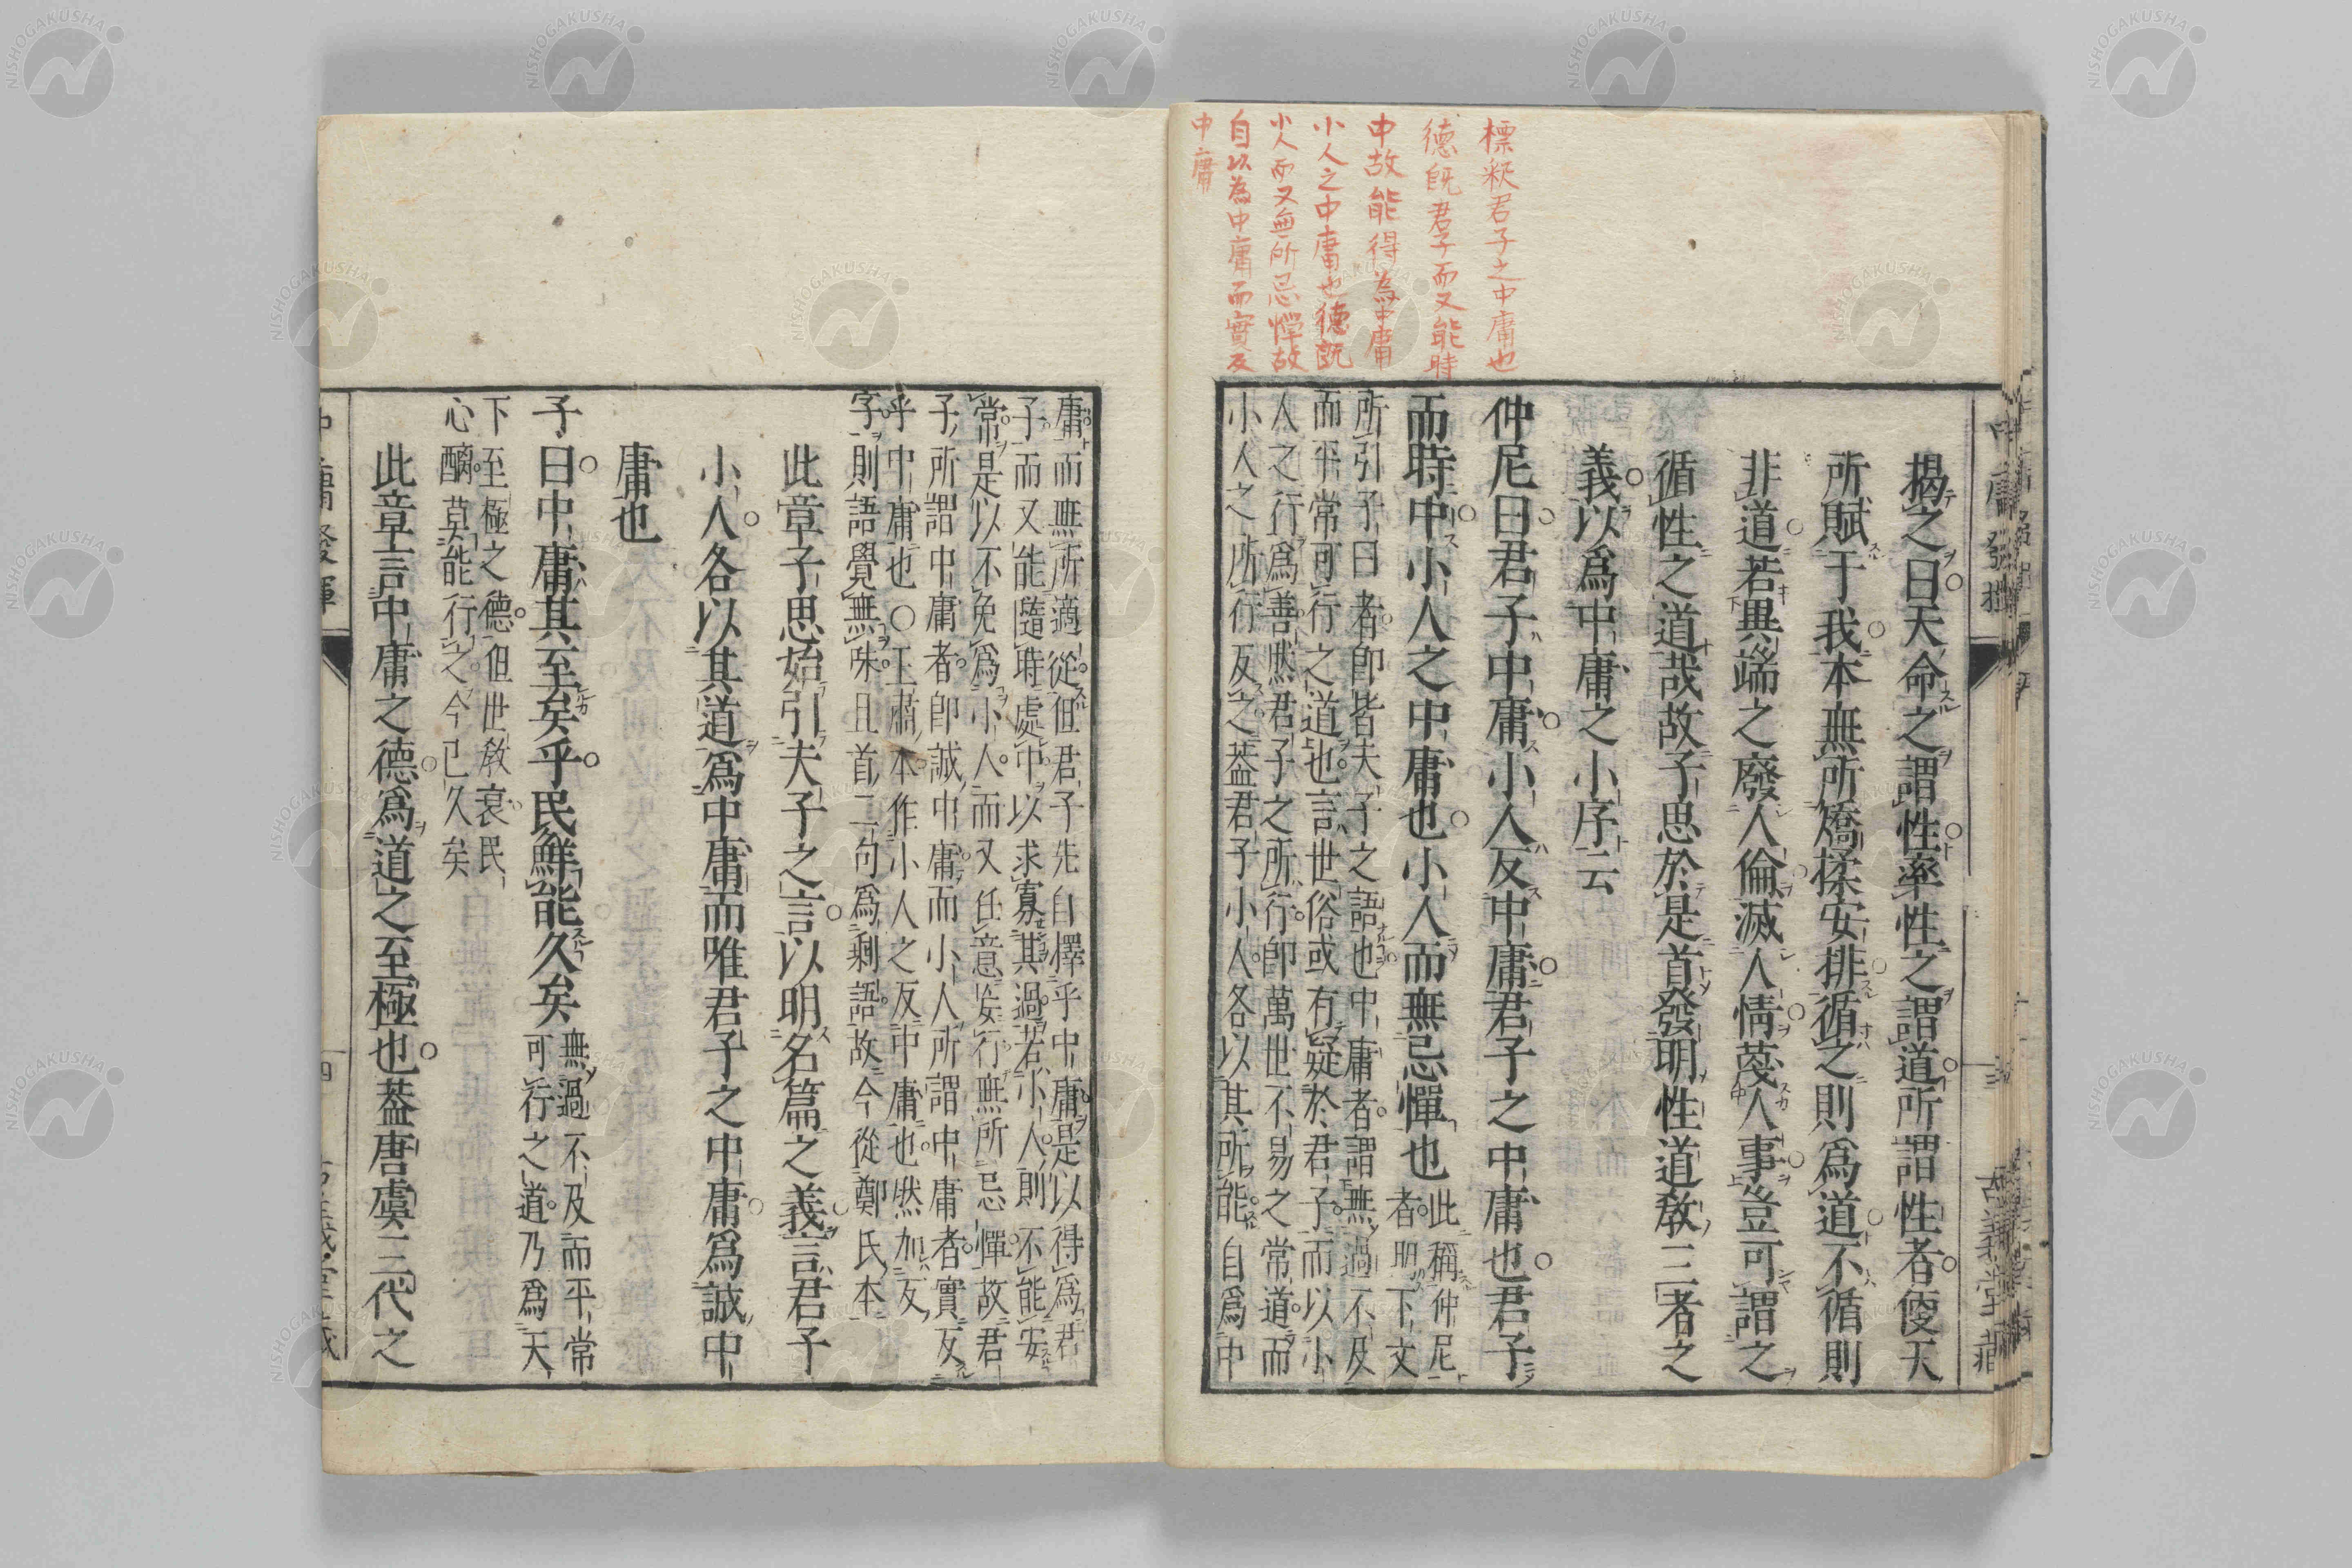 標釈君子之中庸也
德既君子而又能時
中故能得為中庸
小人之中庸也德既
小人而又無所忌憚故
自以為中庸而實反
中庸
中庸發揮
三
古義堂藏
揭之曰天命之謂性率性之謂道所謂性者便天
所賦于我本無所矯揉安排循之則爲道不循則
非道若異端之廢人倫滅人情蔑人事豈可謂之
循性之道哉故子思於是首發明性道敎三者之
義以爲中庸之小序云
仲尼曰君子中庸小人反中庸君子之中庸也君子
而時中小人之中庸也小人而無忌憚也
此稱仲尼
者明下文
所引子曰者卽皆夫子之語也中庸者謂無過不及
而平常可行之道也言世俗或有疑於君子而以小
人之行爲善然君子之所行卽萬世不易之常道而
小人之所行反之蓋君子小人各以其所能自爲中
庸而無所適從但君子先自擇乎中庸是以得爲君
子而又能隨時處中以求寡其過若小人則不能安
常是以不免爲小人而又任意妄行無所忌憚故君
子所謂中庸者卽誠中庸而小人所謂中庸者實反
乎中庸也○王肅本作小人之反中庸也然加反
字則語覺無味且首二句爲剩語故今從鄭氏本
此章子思始引夫子之言以明名篇之義言君子
小人各以其道爲中庸而唯君子之中庸爲誠中
庸也
子曰中庸其至矣乎民鮮能久矣
無過不及而平常
可行之道乃爲天
下至極之德但世敎衰民
心醨莫能行之今已久矣
此章言中庸之德爲道之至極也蓋唐虞三代之
中庸發揮
四
古義堂藏
NISHOGAKUSHA